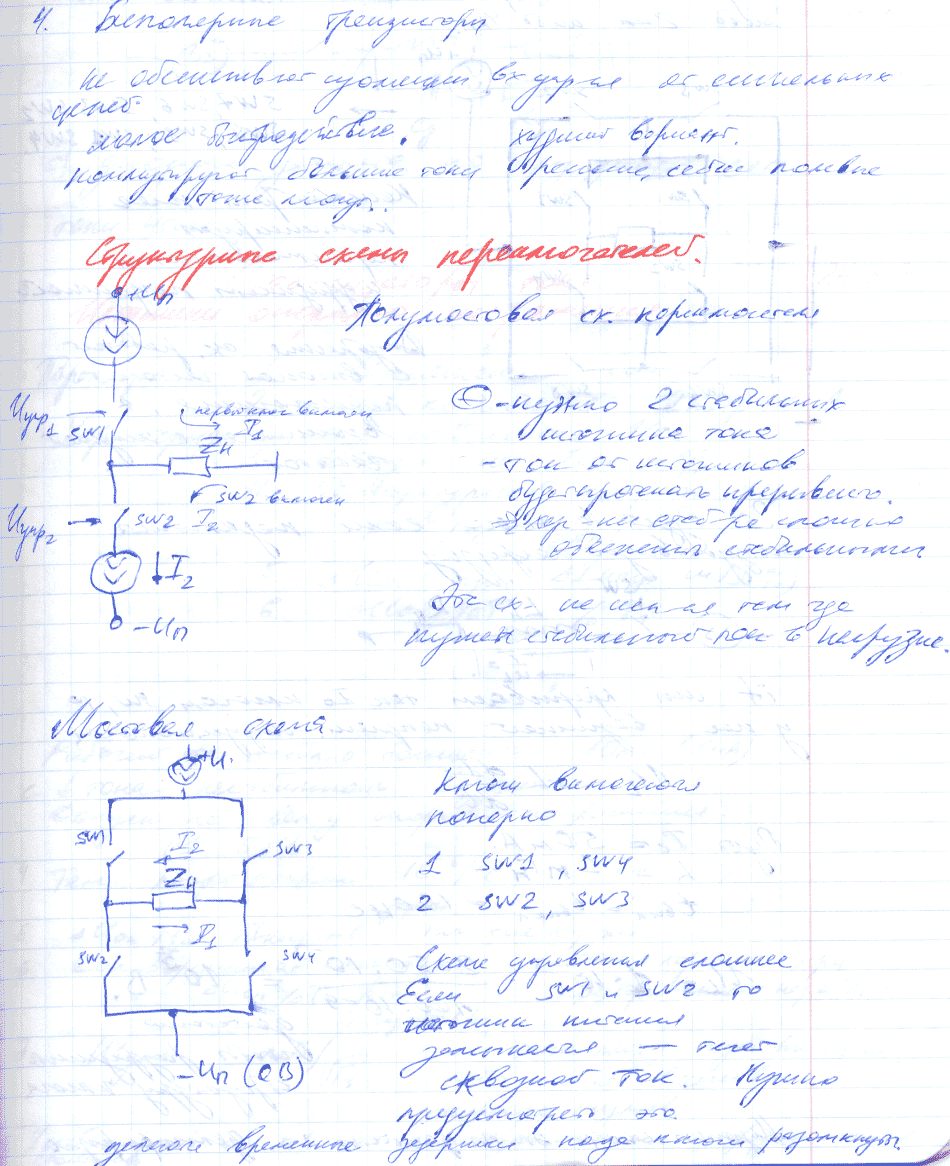 4. Биполярные транзисторы
не обеспечивает изоляции вх упр-я от сигнальных
цепей
малое быстродействие. худший вариант.
коммутируют большие токи решение, сейчас полевые
тоже могут.
Структурные схемы переключателей.
+Uп
Полумостовая сх. переключателя
Uупр1
SW1
первый ключ включен
I1
Zн
SW2 включен
Uупр2
SW2 I2
I2
-Uп
⊖ - нужно 2 стабильных
источника тока
- ток от источников
будет протекать прерывисто.
сложно
обеспечить
Эта сх. не исп-ся там где
нужен стабильный ток в нагрузке.
Мостовая схема
+U.
SW1
I2
SW3
Zн
I1
SW2
SW4
-Uп (0В)
Ключи включаются
попарно
1 SW1, SW4
2 SW2, SW3
Схема управления сложнее
Если SW1 и SW2 то
источник питания
замыкается — течет
сквозной ток. Нужно
предусмотреть это.
делаем временные задержки когда ключи разомкнуты.